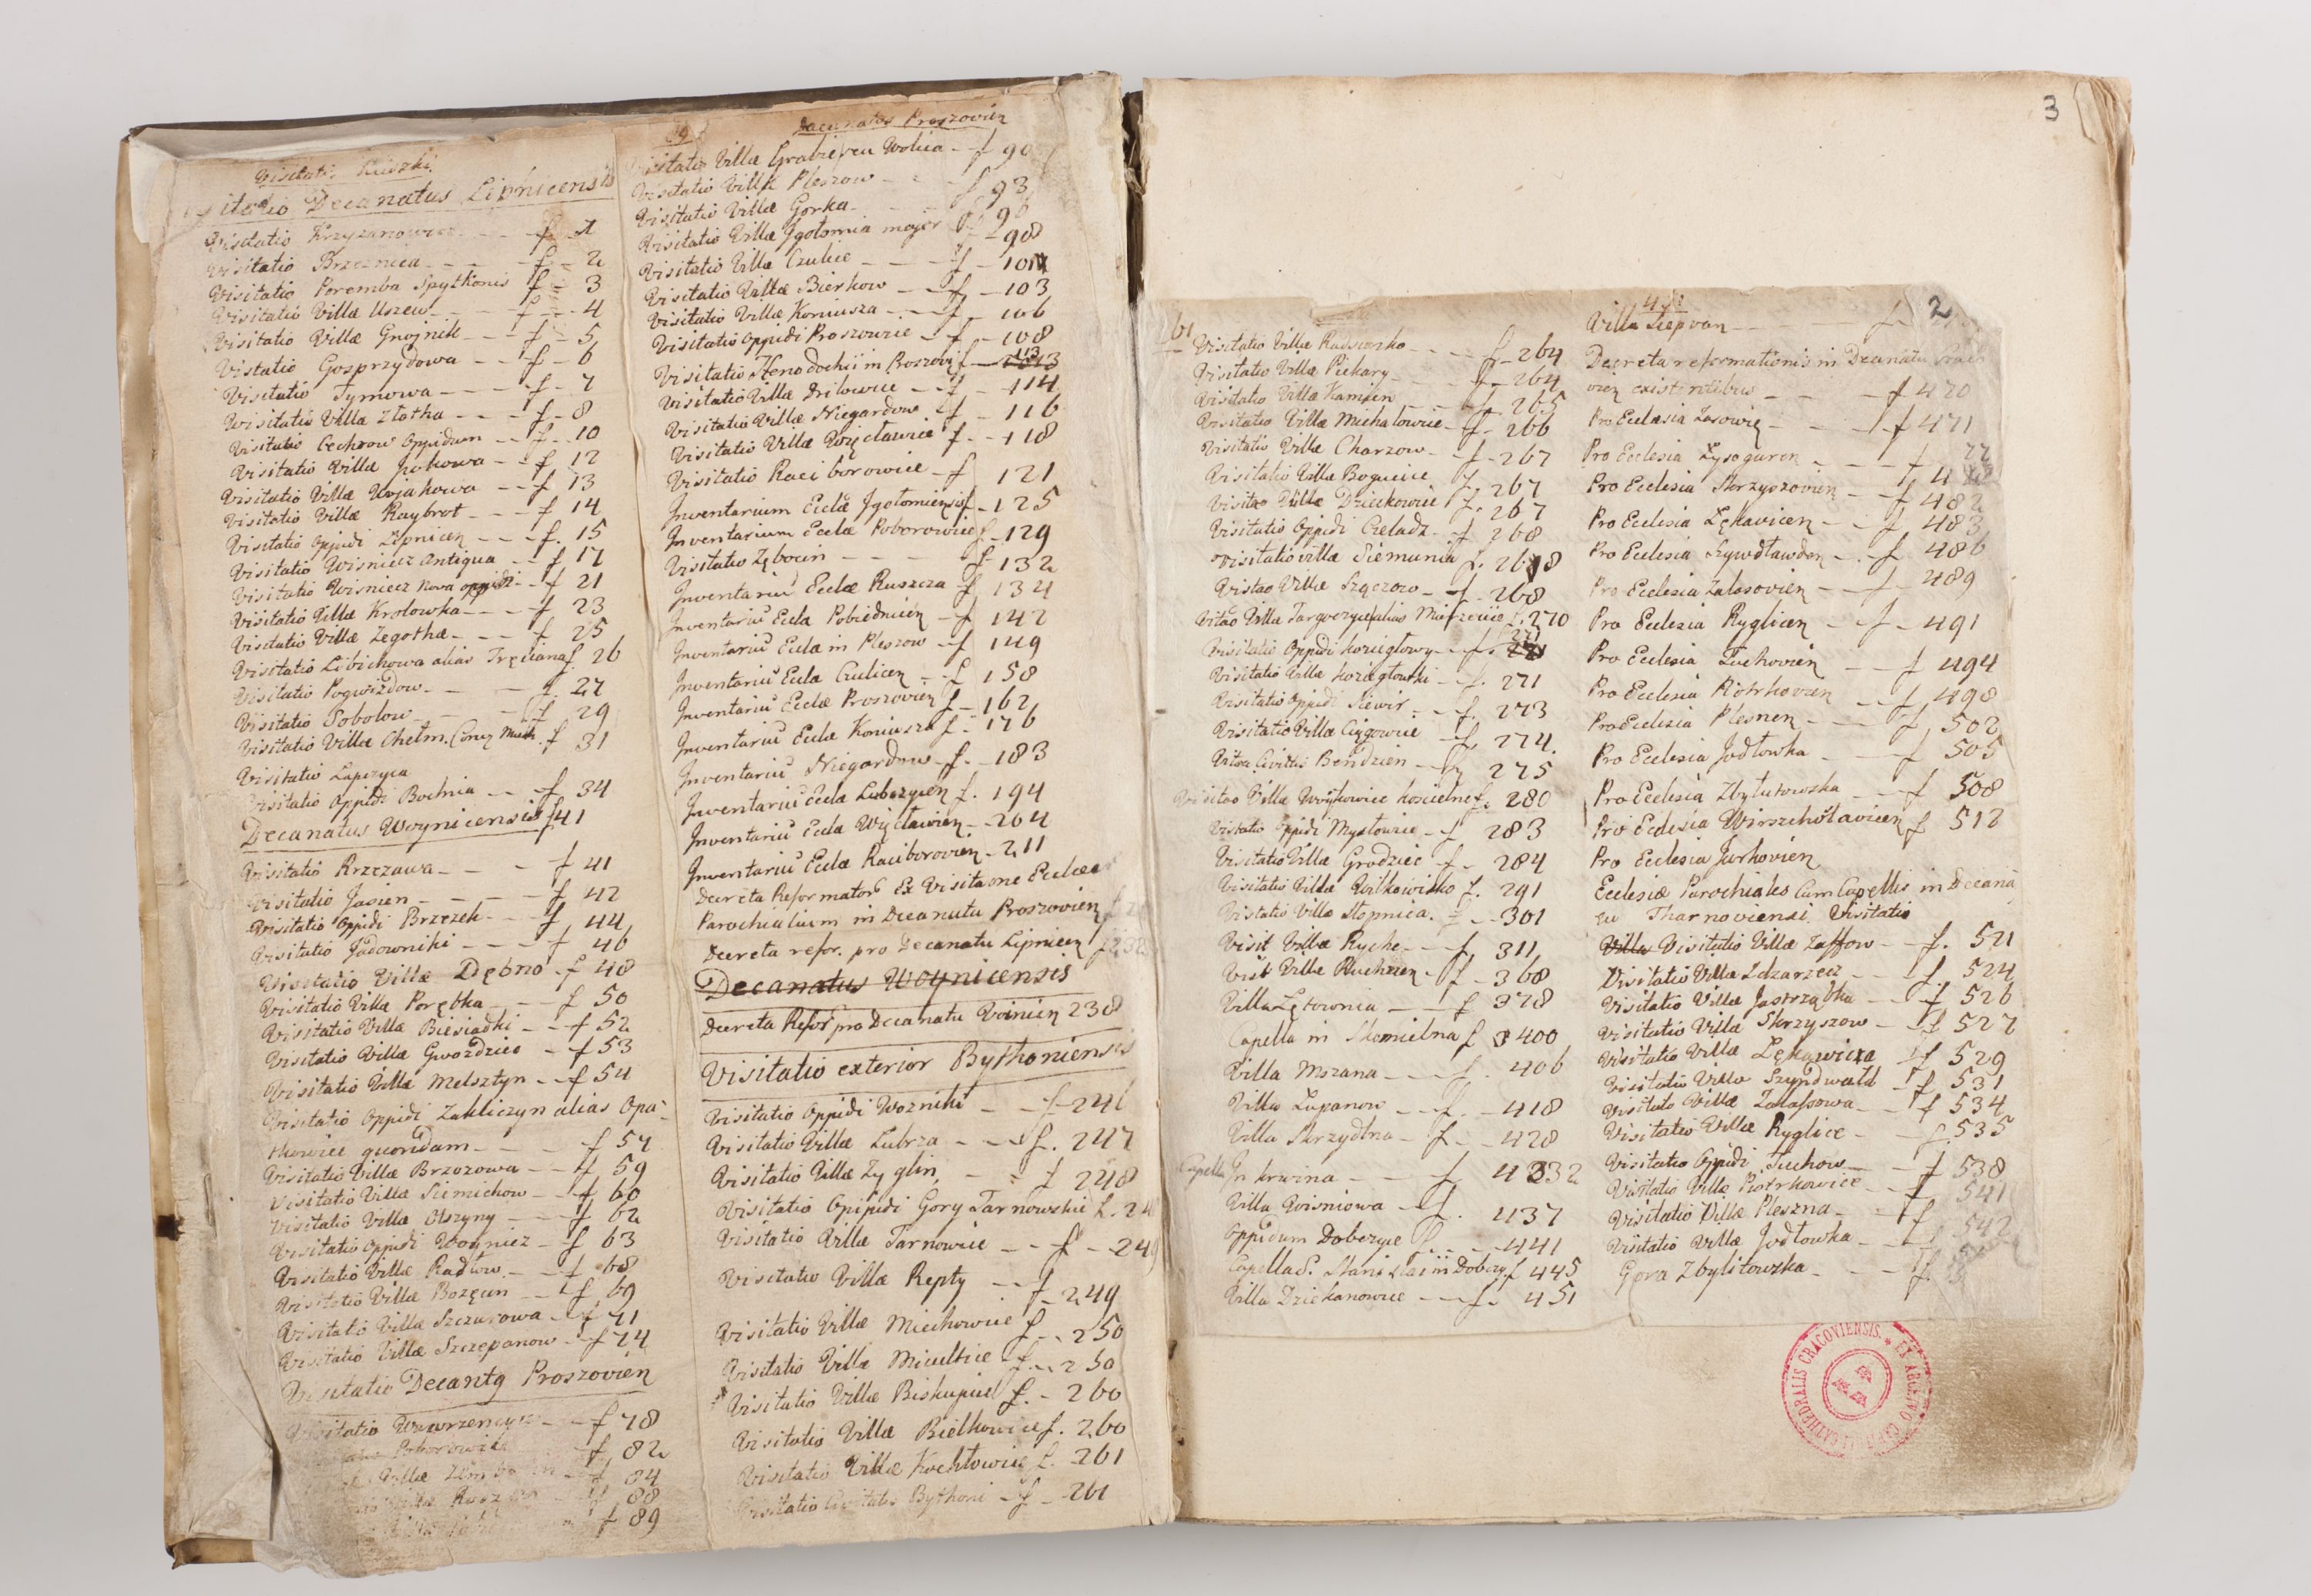 Visitatio Decanatus Lipnicensis
Visitatio Krzyzanowice f 1
Visitatio Brzeznica f 2
Visitatio Poremba Spytkonis f 3
Visitatio Villæ Uszew f 4
Visitatio Villæ Gnojnik f 5
Visitatio Gosprzydowa f 6
Visitatio Tymowa f 7
Visitatio Villæ Złotha f 8
Visitatio Cechrow Oppidum f 10
Visitatio Villæ Jurkowa f 12
Visitatio Villæ Uujakowa f 13
Visitatio Villæ Raybrot f 14
Visitatio Oppidi Lipnicen f. 15
Visitatio Wisnicz Antiqua f 17
Visitatio Wisnicz Nova oppidi f 21
Visitatio Villæ Krolowka f 23
Visitatio Villæ Zegotha f 25
Visitatio Libichowa alias Tręciana f. 26
Visitatio Pogwizdow f. 27
Visitatio Sobolow f 29
Visitatio Villæ Chełm. f 31
Visitatio Lapczyca
Visitatio Oppidi Bochnia f 34
Decanatus Woynicensis f 41
Visitatio Rzezawa f 41
Visitatio Jasien f 42
Visitatio Oppidi Brzezek f 44
Visitatio Jadowniki f 46
Visitatio Villæ Dębno f 48
Visitatio Villæ Porębka f 50
Visitatio Villæ Biesiadki f 52
Visitatio Villæ Gwozdziec f 53
Visitatio Villæ Melsztyn f 54
Visitatio Oppidi Zakliczyn alias Opa-
thowice quondam f 57
Visitatio Villæ Brzozowa f 59
Visitatio Villæ Siemichow f 60
Visitatio Villæ Olszyny f 62
Visitatio Oppidi Woynicz f 63
Visitatio Villæ Radłow f 68
Visitatio Villæ Borzęcin f 69
Visitatio Villæ Szczurowa f 71
Visitatio Villæ Szczepanow f 74
Visitatio Decantq Proszovien
Visitatio Wawrzenczyce f 78
Poborowice f 82
Villæ f 84
f 88
f 89
Decanatus Proszovien
Visitatio Villæ f 90
Visitatio Villæ Pleszow f 93
Visitatio Villæ Gorka f 96
Visitatio Villæ Jgołomia major f 98
Visitatio Villæ Czulice f 101
Visitatio Villæ Bierkow f 103
Visitatio Villæ Koniusza f 106
Visitatio Oppidi Proszowice f 108
Visitatio Xenodochii in Proszow f 113
Visitatio Villæ Drilowice f 114
Visitatio Villæ Niegardow f 116
Visitatio Villæ Więcławice f. 118
Visitatio Raciborowice f 121
Inventarium Ecclæ Jgołomiensis f 125
Inventarium Ecclæ Poborowice f 129
Visitatio Zębocin f 132
Inventariũ Ecclæ Ruszcza f 134
Inventariũ Ecclæ Pobiednicien f 142
Inventariũ Ecclæ in Pleszow f 149
Inventariũ Ecclæ Czulicen f 158
Inventariũ Ecclæ Proszovien f 162
Inventariũ Ecclæ Koniusza f. 176
Inventariũ Niegardow f. 183
Inventariũ Ecclæ Luborzycen f. 194
Inventariũ Ecclæ Więcławien 204
Inventariũ Ecclæ Raciborovien 211
Decreta Reformator Ex Visitaone Ecclæar
Parochialium in Decanatu Proszovien
Decreta refor. pro Decanatu Lipnicen f 232
Decanatus Woynicensis
Decreta Refor pro Decanatu Voinicn 238
Visitatio exterior Bythoniensis
Visitatio Oppidi Wozniki f 246
Visitatio Villæ Lubrza f. 247
Visitatio Villæ Zyglin f 248
Visitatio Oppidi Gory Tarnowskie f. 24
Visitatio Villæ Tarnowice f 249
Visitatio Villæ Repty f 249
Visitatio Villæ Miechowice f 250
Visitatio Villæ Micultice f 250
Visitatio Villæ Biskupice f. 260
Visitatio Villæ Bielkowice f. 260
Visitatio Villæ Kochłowice f. 261
Visitatio Civitatis Bythoni f 261
3
61
Visitatio Villæ Radsionko f 264
Visitatio Villæ Piekary f 264
Visitatio Villæ Kamien f. 265
Visitatio Villæ Michałowice f. 266
Visitatio Villæ Charzow f 267
Visitatio Villæ Bogucice f. 267
Visitao Villæ Dzieckowice f. 267
Visitatio Oppidi Czeladz f 268
Visitatio villæ Siemunia f. 268
Vistao Villæ Sączow f. 268
Vitao Villæ Targoszyce alias Mierzecice f. 270
Visitatio Oppidi Kozieglowy f. 271
Visitatio Villæ Kozieglowki f. 271
Visitatio Oppidi Siewir f. 273
Visitatio Villæ Ciągowice f. 274
Vitao Civittis Bendzien f 275
Visitao Villæ Woykowice Koscielne f. 280
Visitatio Oppidi Mysłowice f 283
Visitatio Villæ Grodziec f 284
Visitatio Villæ Wilkowisko f. 291
Visitatio Villæ Słopnica. f 301
Visit Villæ Rychc f 311
Visit Villæ Kluchnen f 368
Villa Lętownia f 378
Capella in Skomielna f 400
Villa Mszana f. 406
Villa Lapanow f. 418
Villa Skrzydlna f. 428
Capella In krwina f 432
Villa Wisniowa f. 437
Oppidum Dobczyce f 441
Capella S. Stanislai in Dobczy f 445
Villa Dziekanowice f. 451
2
Villa Siepvan f.
Decreta reformationis in Decanatu
existentibus f 470
Pro Ecclesia Zasowię f 471
Pro Ecclesia Lysoguren f 77
Pro Ecclesia Skrzyszovien f 482
Pro Ecclesia Lękavicen f 483
Pro Ecclesia Szywdławden f. 486
Pro Ecclesia Zalasovien f 489
Pro Ecclesia Ryglicen f 491
Pro Ecclesia Tuchovien f 494
Pro Ecclesia Piotrkovien f 498
Pro Ecclesia Plesnen f 502
Pro Ecclesia Jodłowka f 505
Pro Ecclesia Zbylutowska f 508
Pro Ecclesia Wirszchosłavicen f 512
Pro Ecclesia Jurkovien
Ecclesiæ Parochiales Cum Capellis in Decana
tu Tharnoviensi Visitatio
Villa Visitatio Villæ Zassow f. 521
Visitatio Villæ Zdzarzecz f 524
Visitatio Villæ Jastrząbka f 526
Visitatio Villæ Skrzyszow f 527
Visitatio Villæ Lękawicza f 529
Visitatio Villæ Szyndwałd f 531
Visitatio Villæ Zalassowa f 534
Visitatio Villæ Ryglice f 535
Visitatio Oppidi Tuchow f 538
Visitatio Villæ Piotrkowice f 541
Visitatio Villæ Pleszna f 542
Visitatio Villæ Jodłowka f
Gora Zbylitowska f.
EX ARCHIVO CAPITULI CATHEDRALIS CRACOVIENSIS.